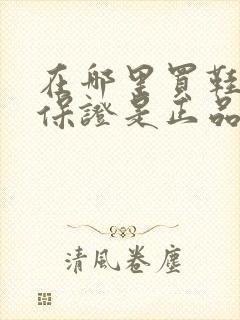 在哪里買鞋
保證是正品
清風卷塵